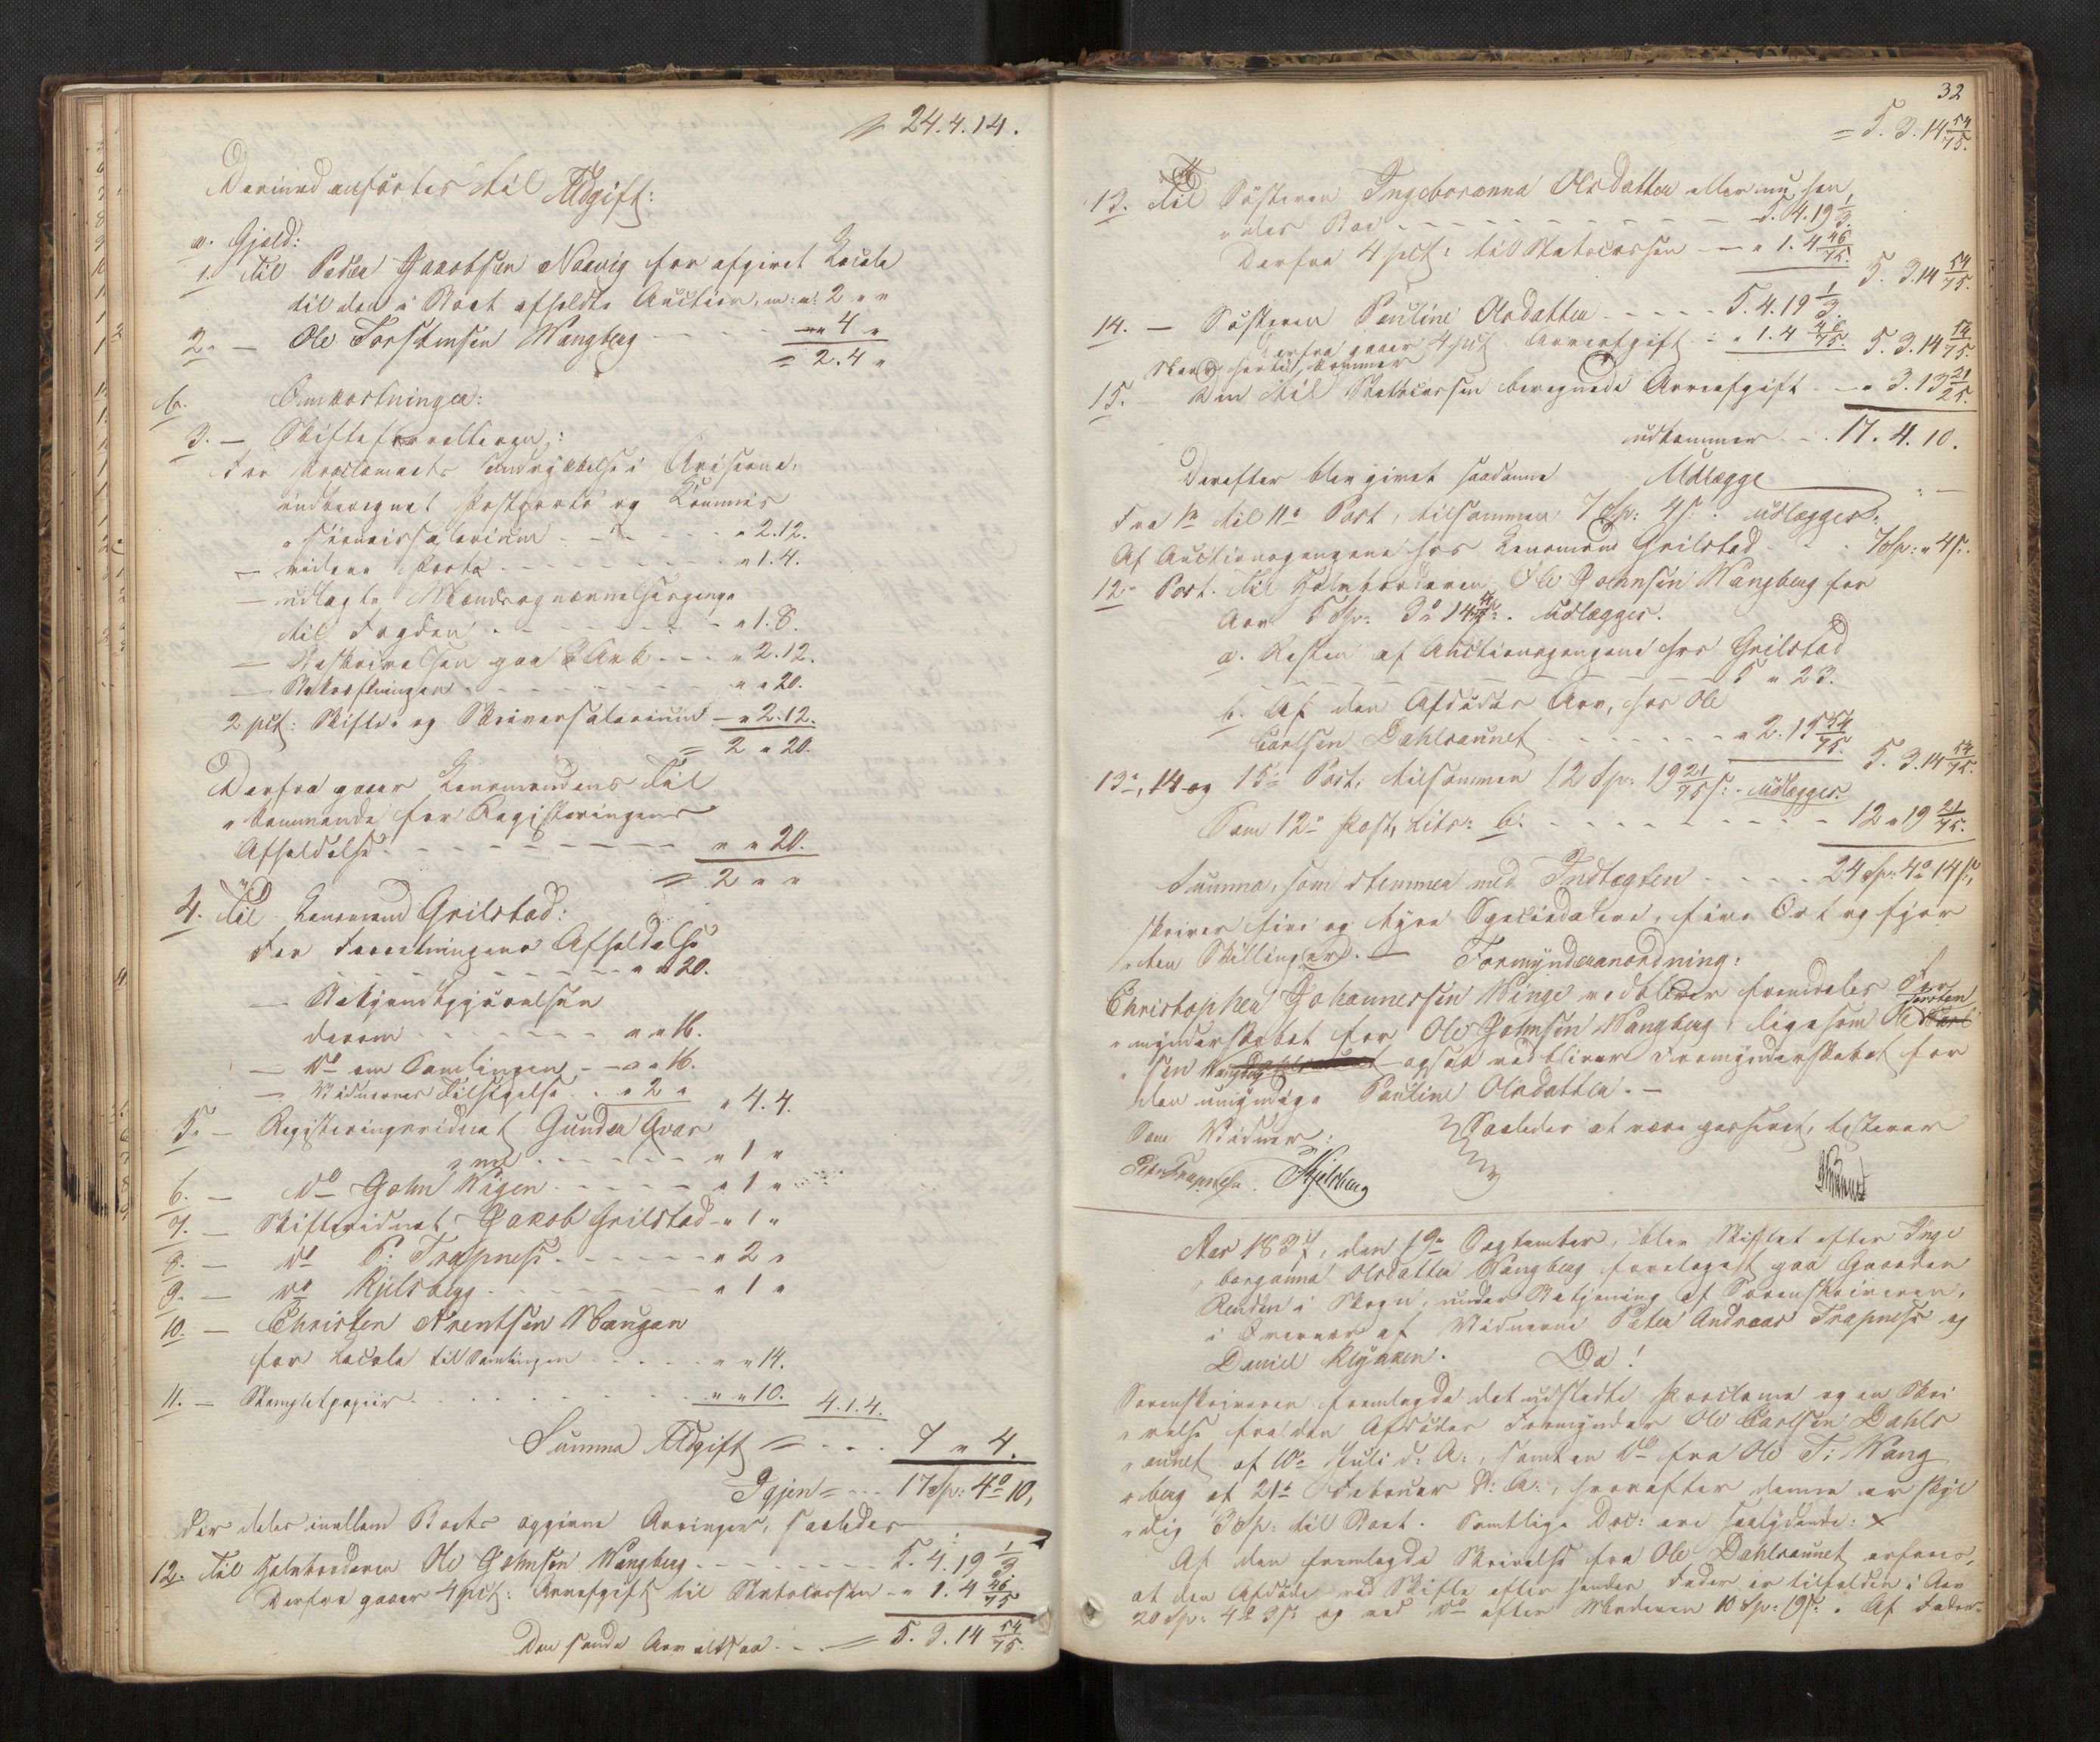 = 24.4.14.
Derimod anførtes til Udgift:
a. Gjæld:
1. til Peder Jacobsen Naavig for afgivet Locale
til den i Boet afholdte Auction, m: v: 2 " "
2. — Ole Torstensen Wangberg - - - " 4 "
= 2.4 "
b. Omkostninger:
3. — Skifteforvalteren:
For Proclamaets Indrykkelse i Aviserne,
indberegnet Postporto og Commis
" sionairsalarium - - - " 2.12.
— videre Porto - - - " 1.4.
— udlagte Mændsopnævnelsespenge
til Fogden - - - " 1.8.
— Beskrivelsen paa 3 Ark - - - " 2.12.
— Bekræftningen - - - " " 20.
2 pct: Skifte- og Skriversalarium — " 2.12.
= 2 " 20.
Derfra gaaer Lensmandens Til
" kommende for Registeringens
Afholdelse - - - " " 20.
= 2 " "
4. Til Lensmand Grilstad:
For Forretningens Afholdelse
- - - " " 20.
— Bekjendtgjørelsen
derom - - - " " 16.
— Do om Samlingen - - " " 16.
— Vidnernes Tilsigelse - " 2 " " 4.4.
5. — Registeringsvidnet Gunder Qvar
" me - - - " 1 "
6. — Do John Wigen - - - " 1 "
7. — Skiftevidnet Jakob Grilstad - " 1 "
8. — Do P: Trapness - - - " 2 "
9. — Do Kjelsberg - - - " 1 "
10. — Christen Arentsen Waugan
for Locale til Samlingen - - - " " 14.
11. — Stempletpapiir - - - " " 10. 4.1.4.
Summa Udgift = - - - 7 " 4.
Igjen = - - - 17 Sp: 4 o 10,
der deles imellem Boets opgivne Arvinger, saaledes
12. til Halvbroderen Ole Johnsen Wangberg - - - 5.4.19 1/3.
Derfra gaaer 4 pct: Arveafgift til Statscassen - " 1.4 46/75
Den sande Arv altsaa - - = 5.3.14 54/75.
32
= 5.3.14 54/75.
13. Til Søsteren Ingeboranna Olsdatter eller nu hen
" des Boe - - - 5.4.19 1/3.
Derfra 4 pct: til Statscassen — " 1.4 46/75. 5.3.14 54/75.
14. — Søsteren Pauline Olsdatter - - - 5.4.19 1/3.
Derfra gaaer 4 pct Arveafgift - " 1.4 46/75. 5.3.14 54/75.
hertil kommer
15. Den til Statscassen beregnede Arveafgift — " 3.13 21/25.
udkommer - - 17.4.10.
Derefter blev givet saadanne Udlægge
Fra 1te til 11te Post, tilsammen 7 Sp: 4 s: udlægges:
Af Auctionspengene hos Lensmand Grilstad - - 7 Sp: " 4 s:
12te Post. Til Halvbroderen Ole Johnsen Wangberg for
Arv 5 Sp: 3 o 14 54/75 s: Udlægges.
a. Resten af Auctionspengene hos Grilstad
- - - 5 " 23.
b. Af den Afdødes Arv, hos Ole
Carlsen Dahlsaunet - - - " 2.15 54/75. 5.3.14 54/75.
13de, 14 og 15de Post, tilsammen 12 Sp: 19 21/75 s: Udlægges:
Som 12te Post, Litr: b. - - - 12 " 19 21/75.
Summa, som stemmer med Indtægten - - - 24 Sp: 4 o 14 s:,
skriver fire og tyve Speciedalere, fire Ort og fjor
" ten Skillinger. — Formynderanordning:
Christopher Johannessen Winge vedbliver fremdeles For
" mynderskabet for Ole Johnsen Wangberg, ligesom Ole Torsten
" sen Wangberg ogsaa vedbliver Formynderskabet for
den umyndige Pauline Olsdatter. —
Som Vidner: Saaledes at være passeret, testerer
Kjelsberg
Aar 1837, den 19de September, blev Skiftet efter Inge
" borganna Olsdatter Wangberg foretaget paa Gaarden
Renden i Skogn, under Betjening af Sorenskriveren,
i Overvær af Vidnerne Peter Andreas Trapness og
Daniel Klykken. Da!
Sorenskriveren fremlagde det udstedte Proclama og en Skri
" velse fra den Afdødes Formynder Ole Carlsen Dahls
" aunet af 10de Juli d: A:, samt en Do fra Ole T: Wang
" berg af 21de Februar d: A:, hvorefter denne er skyl
" dig 3 Sp: til Boet. Samtlige Doc: ere saalydende: ×
Af den fremlagde Skrivelse fra Ole Dahlsaunet erfares,
at den Afdøde ved Skifte efter hendes Fader er tilfalden i Arv
20 Sp: 4 o 3 s: og ved Do efter Moderen 10 Sp: 19 s:. Af Fader-